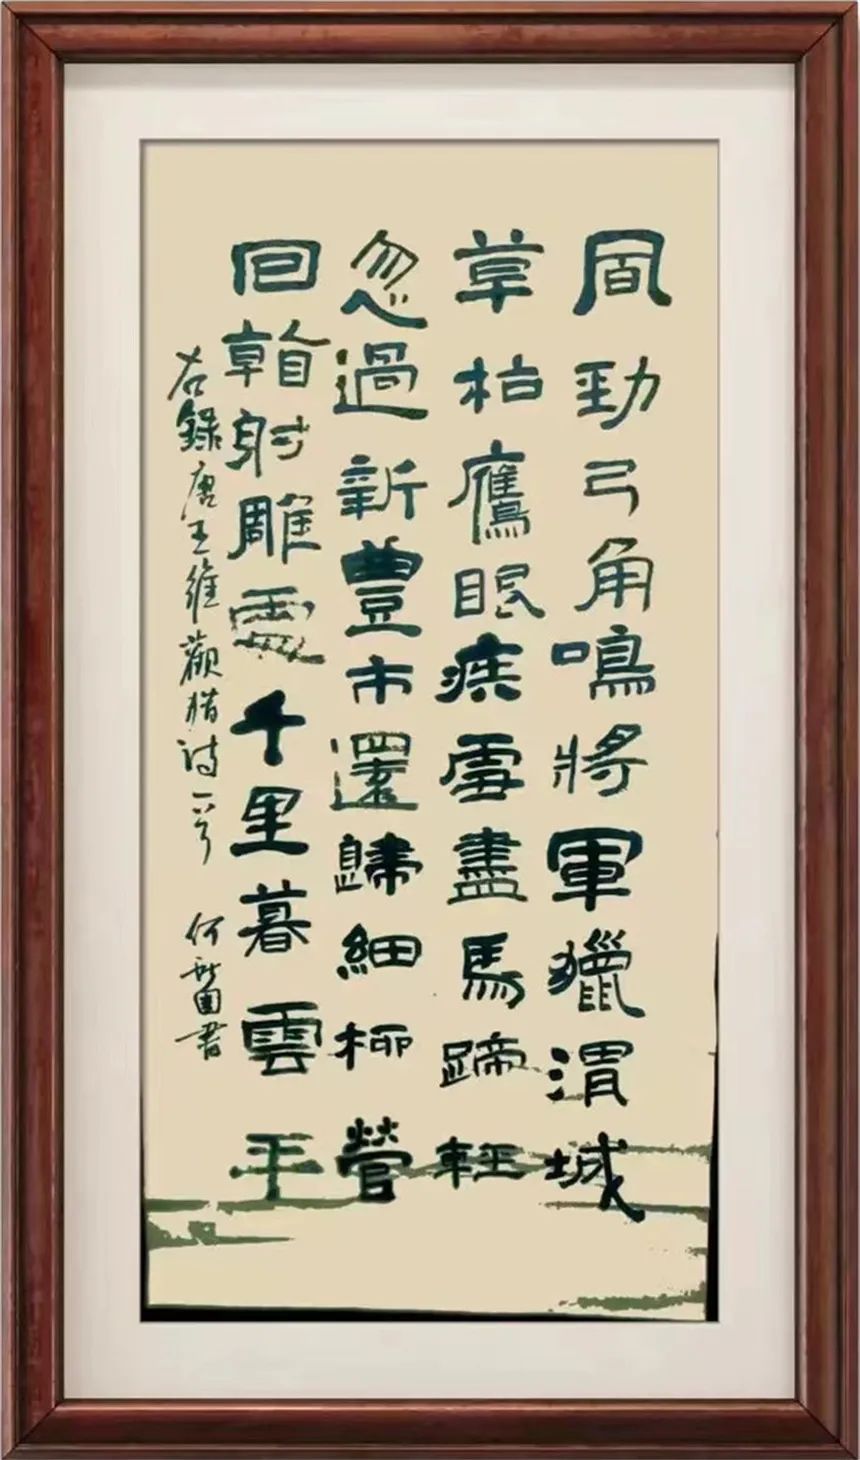 風勁弓角鳴將軍獵渭城
草枯鷹眼疾雪盡馬蹄輕
忽過新豐市還歸細柳營
回看射雕處千里暮雲平
右錄唐王維觀猎詩一首 何書